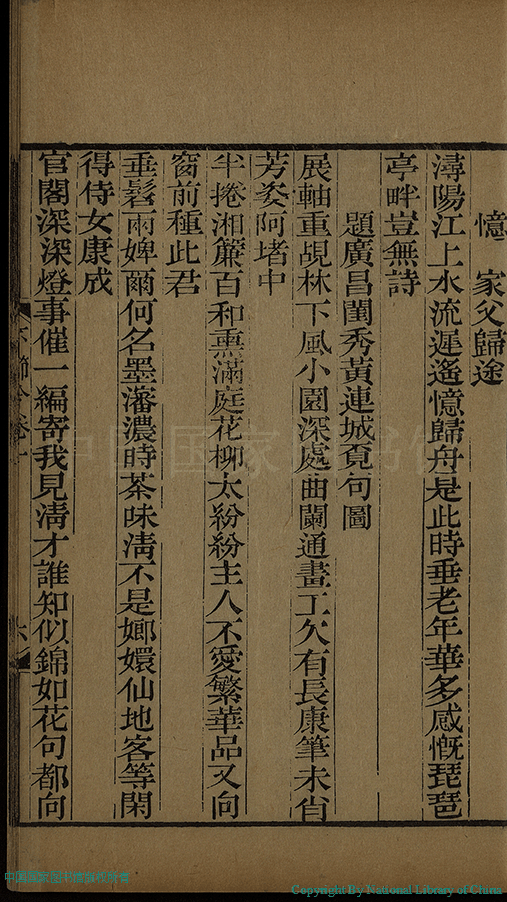 憶　家父歸途
潯陽江上水流遲遙憶歸舟是此時垂老年華多感慨琵琶
亭畔豈無詩
題廣昌閨秀黃連城覓句圖
展軸重覘林下風小園深處曲闌通畫工久有長康筆未省
芳姿阿堵中
半捲湘簾百和熏滿庭花柳太紛紛主人不愛繁華品又向
窗前種此君
垂髫雨婢爾何名墨瀋濃時茶味淸不是嫏嬛仙地客等閑
得侍女康成
官閣深深燈事催一編寄我見淸才誰知似錦如花句都向
中国国家图书馆
中国国家图书馆
Copyright By National Library of China